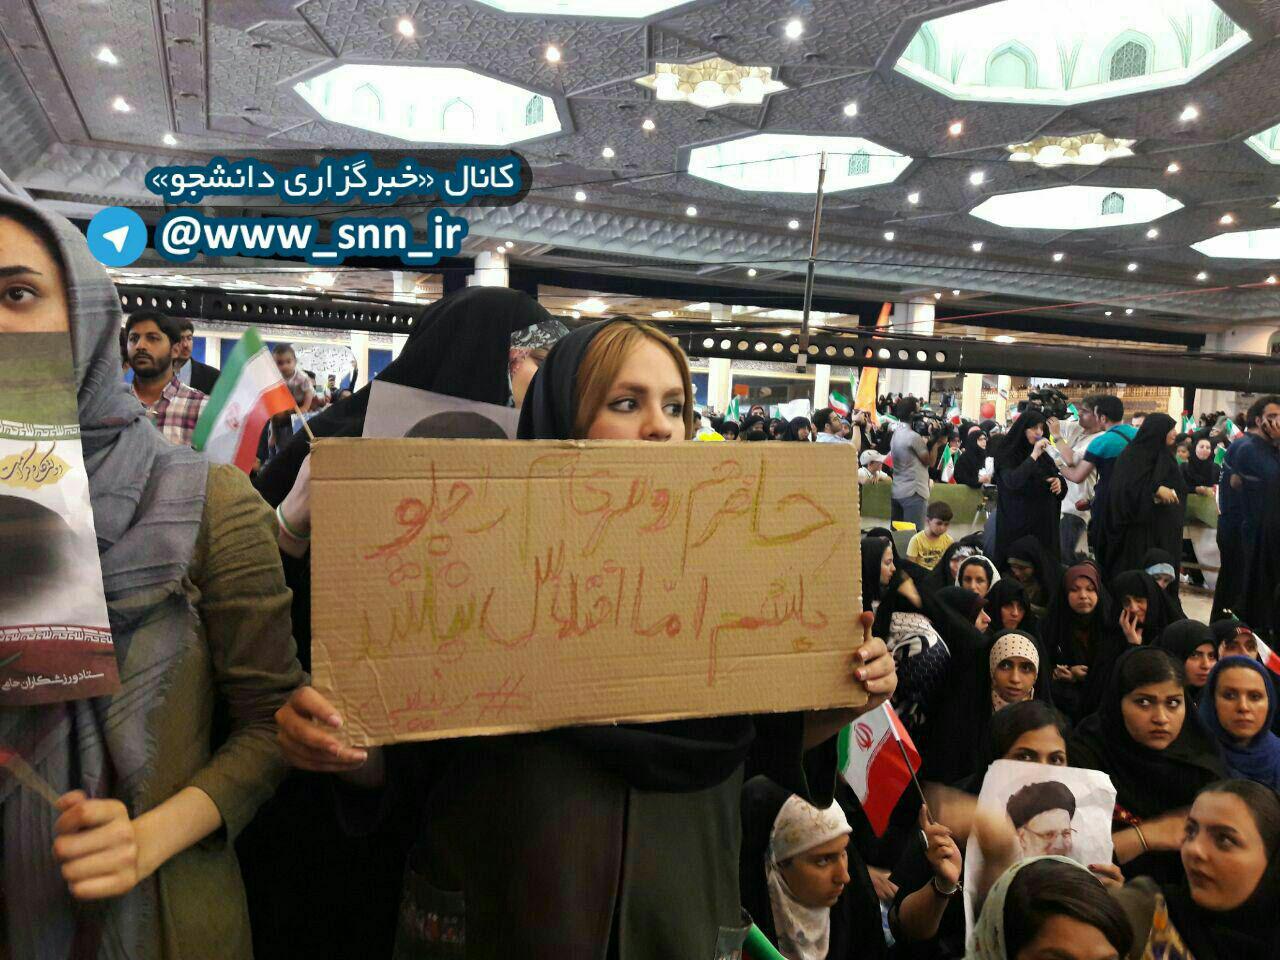 کانال «خبرگزاری دانشجو»
@www_snn_ir
حاضرم روسریم را جلو
بکشم اما اختلاس نباشد
#
ستاد ورزشکاران حامی